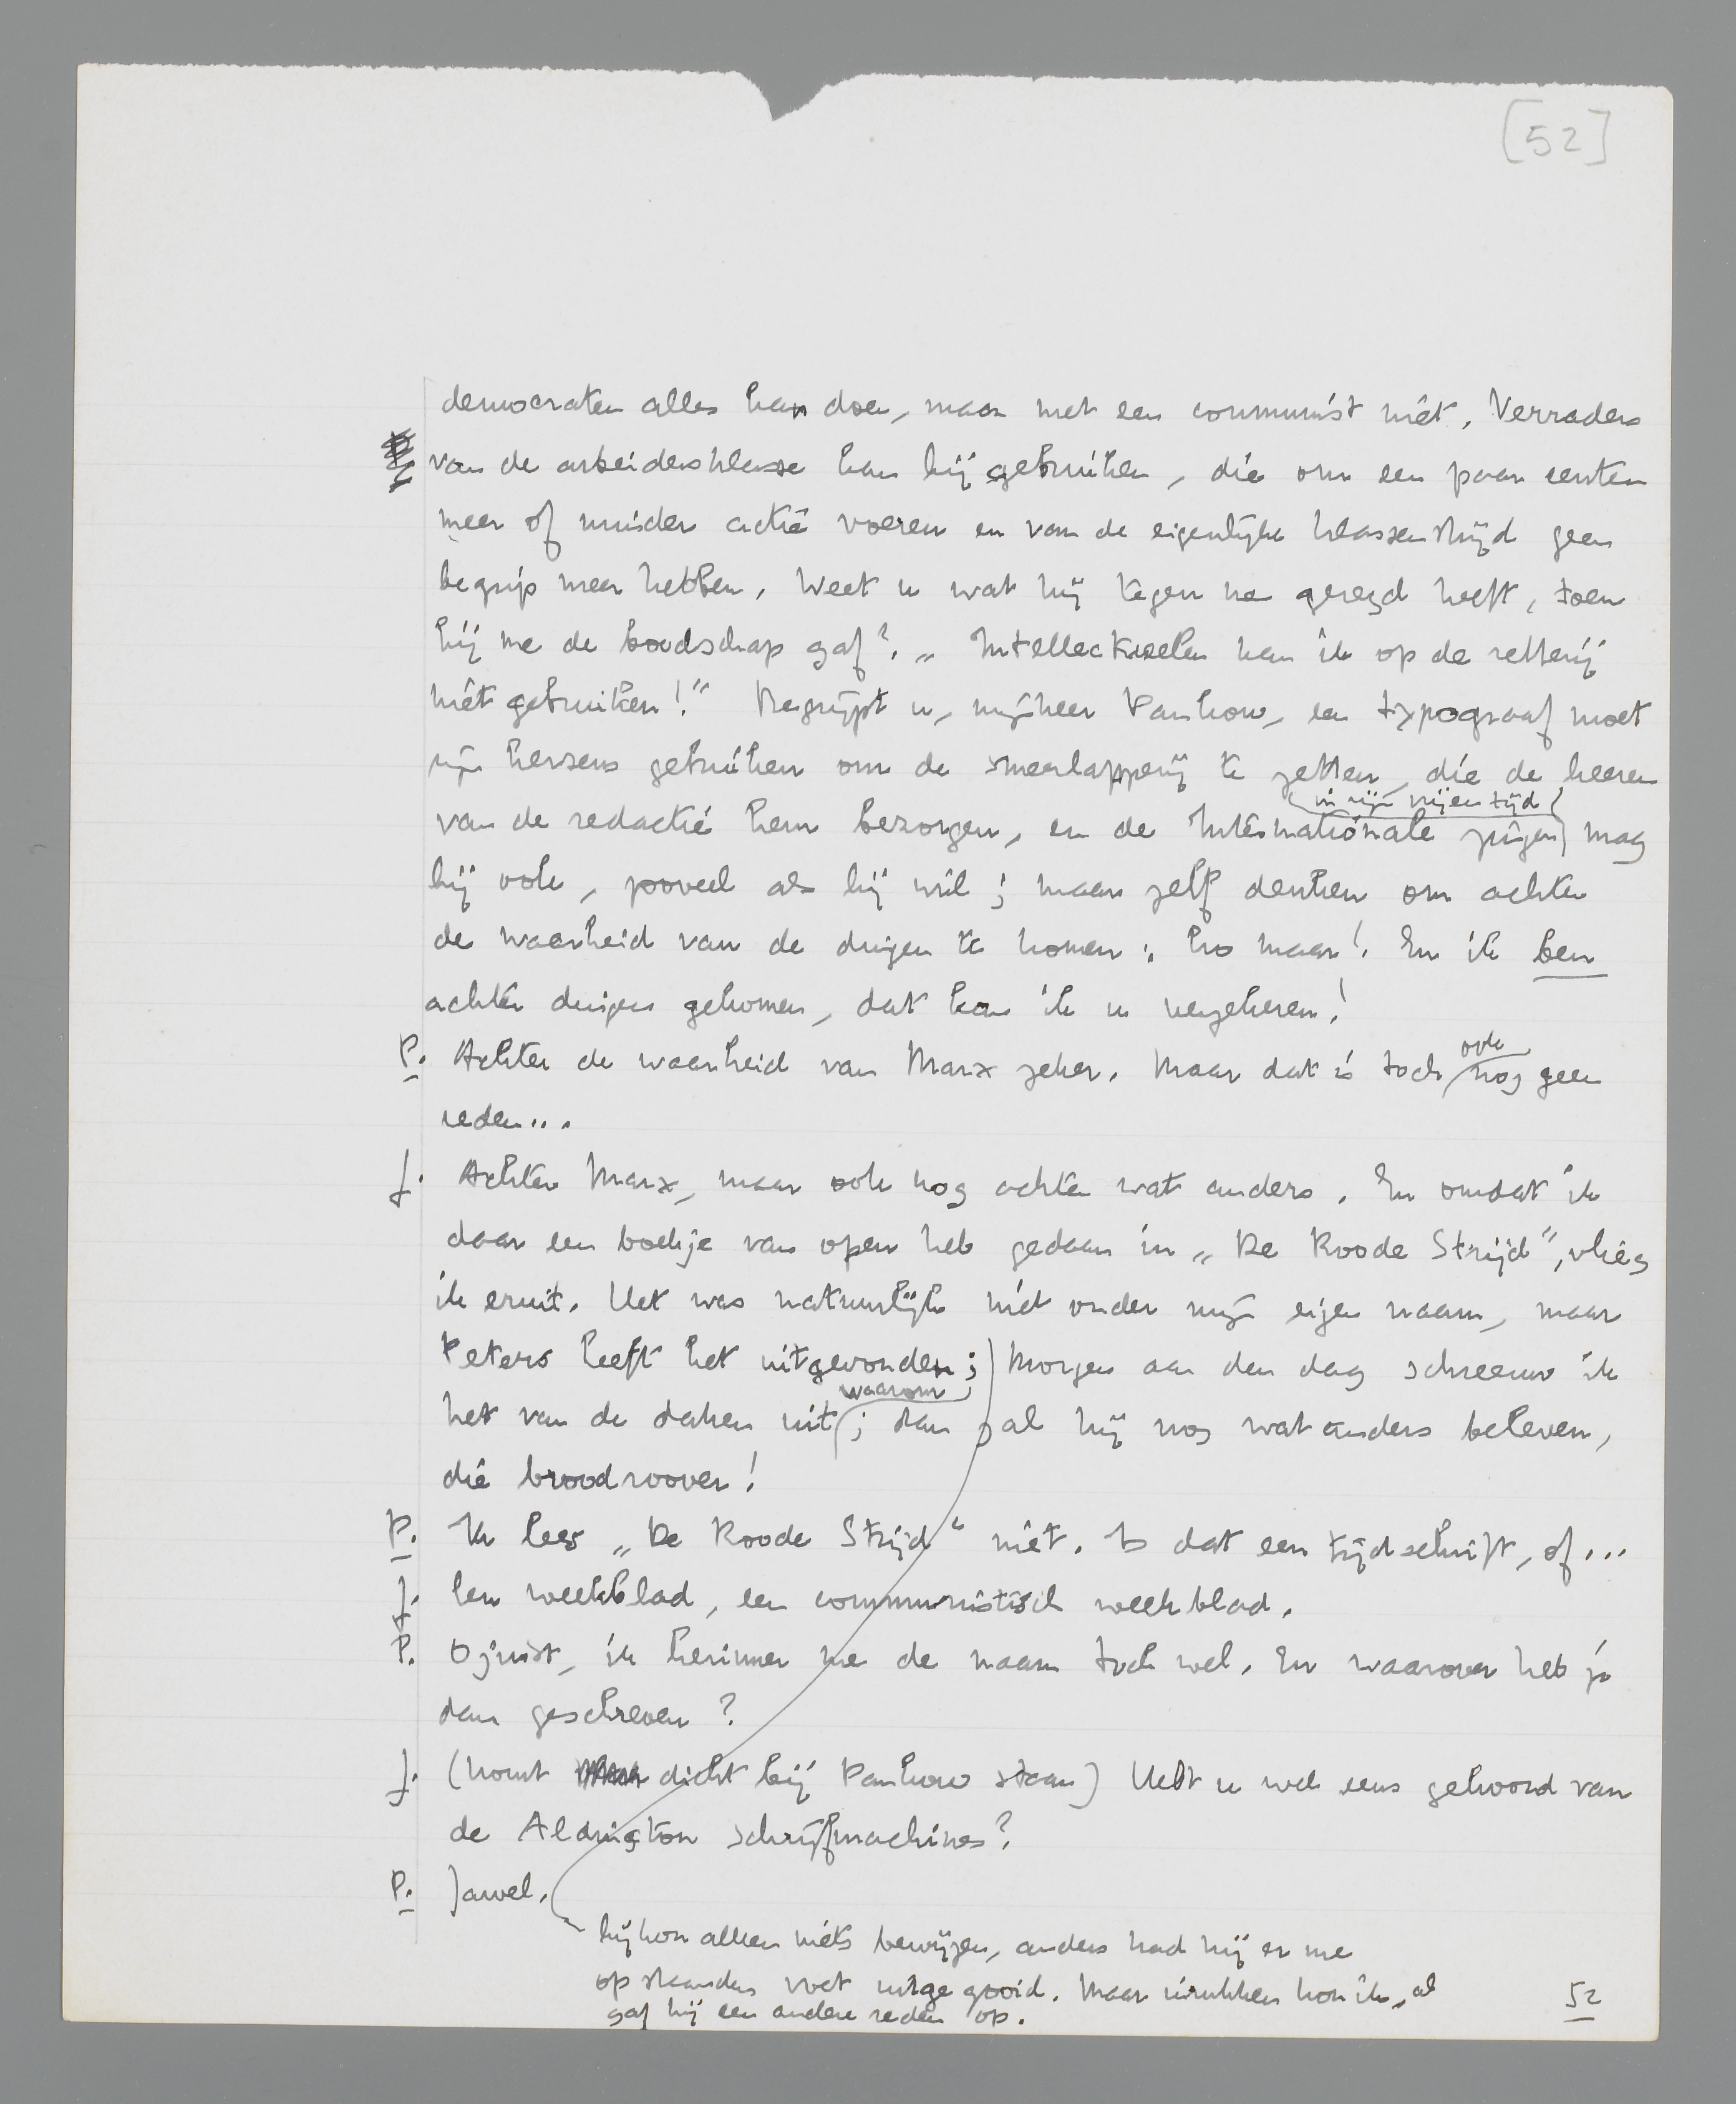 [52]
democraten alles kan doen, maar met een communist niet. Verraders
van de arbeidersklasse kan hij gebruiken, die om een paar centen
meer of minder actie voeren en van de eigenlijke klassenstrijd geen
begrip meer hebben. Weet u wat hij tegen me gezegd heeft, toen
hij me de boodschap gaf? „Intellectueelen kan ik op de zetterij
niet gebruiken!” Begrijpt u, mijnheer Pankow, een typograaf moet
zijn hersens gebruiken om de smeerlapperij te zetten, die de heeren
in zijn vrijen tijd
van de redactie hem bezorgen, en de Internationale zingen mag
hij ook, zooveel als hij wil; maar zelf denken om achter
de waarheid van de dingen te komen: ho maar! En ik ben
achter dingen gekomen, dat kan ik u verzekeren!
P. Achter de waarheid van Marx zeker. Maar dat is toch ook nog geen
reden...
J. Achter Marx, maar ook nog achter wat anders. En omdat ik
daar een boekje van open heb gedaan in „De Roode Strijd”, vlieg
ik eruit. Het was natuurlijk niet onder mijn eigen naam, maar
Peters heeft het uitgevonden; morgen aan den dag schreeuw ik
waarom
het van de daken uit; dan zal hij nog wat anders beleven,
die broodroover!
P. Ik lees „De Roode Strijd” niet. Is dat een tijdschrift, of...
J. Een weekblad, een communistisch weekblad.
P. O juist, ik herinner me de naam toch wel. En waarover heb je
dan geschreven?
J. (komt dicht bij Pankow staan) Hebt u wel eens gehoord van
de Aldington schrijfmachines?
P. Jawel.
hij kon alleen niets bewijzen, anders had hij er me
op staanden voet uitgegooid. Maar inrukken kon ik, al
gaf hij een andere reden op.
52